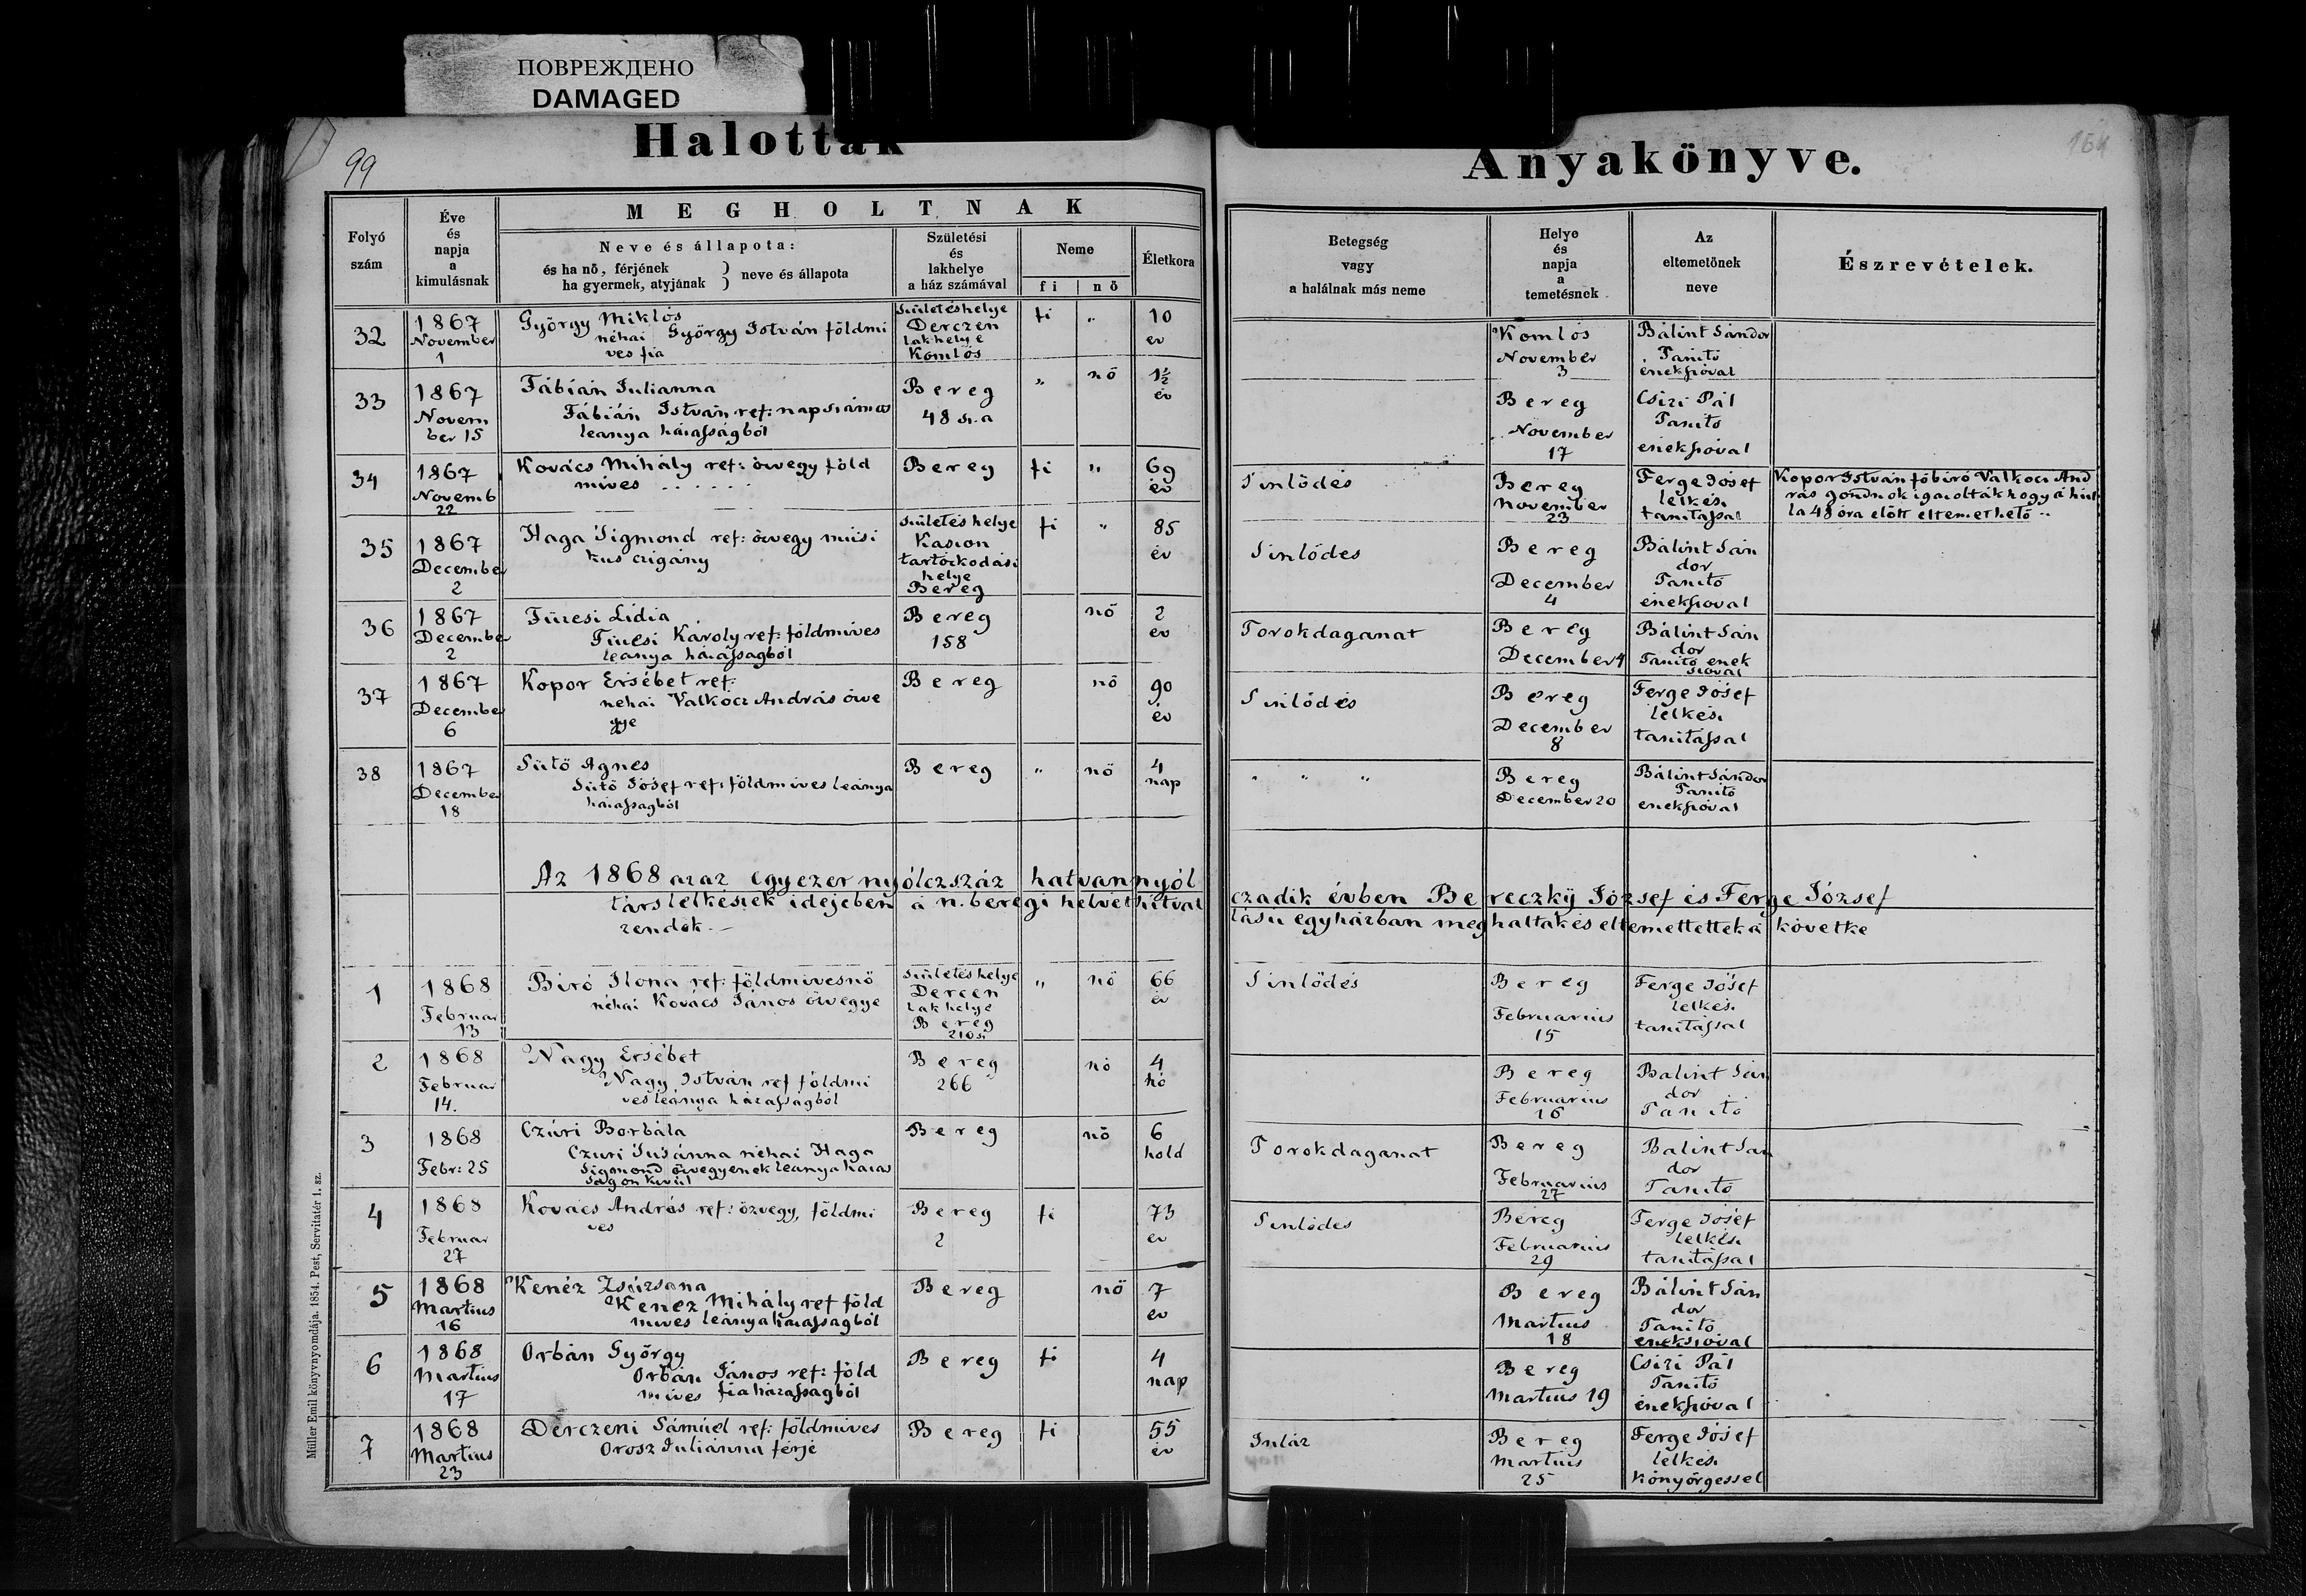 ПОВРЕЖДЕНО
DAMAGED
99
Halottak
Anyakönyve.
164
Folyó szám
Éve és napja a kimulásnak
MEGHOLTNAK
Neve és állapota:
és ha nő, férjének
ha gyermek, atyjának
neve és állapota
Születési és lakhelye a ház számával
Neme
fi
nő
Életkora
Betegség vagy a halálnak más neme
Helye és napja a temetésnek
Az eltemetőnek neve
Észrevételek.
32
1867
November
1
György Miklós
néhai György István földmi
ves fia
Születéshelye
Derczen
lakhelye
Komlós
fi
"
10
év
Komlós
November
3
Bálint Sándor
Tanító
énekszóval
33
1867
Novem
ber 15
Fábián Julianna
Fábián István ref: napszámos
leánya házasságból
Bereg
48 sz.a
"
nő
1½
év
Bereg
November
17
Csizi Pál
Tanító
énekszóval
34
1867
Novemb
22
Kovács Mihály ref: özvegy föld
míves
Bereg
fi
"
69
év
Sinlődés
Bereg
November
23
Ferge Jósef
lelkész
tanítással
Kopor István főbíró Valkocz And
rás gondnok igazolták hogy á hul
la 48 óra előtt eltemethető
35
1867
December
2
Haga Sigmond ref: özvegy músi
kus czigány
Születéshelye
Kaszon
tartózkodási
helye
Bereg
fi
"
85
év
Sinlődés
Bereg
December
4
Bálint Sán
dor
Tanító
énekszóval
36
1867
December
2
Füzesi Lídia
Füzesi Károly ref: földmíves
leánya házasságból
Bereg
158
nő
2
év
Torokdaganat
Bereg
December 4
Bálint Sán
dor
Tanító ének
szóval
37
1867
December
6
Kopor Ersébet ref:
néhai Valkocz András özve
gye
Bereg
nő
90
év
Sinlődés
Bereg
December
8
Ferge Jósef
lelkész
tanítással
38
1867
December
18
Sütő Ágnes
Sütő Jósef ref: földmíves leánya
házasságból
Bereg
"
nő
4
nap
" " "
Bereg
December 20
Bálint Sándor
Tanító
énekszóval
Az 1868 azaz egyezer nyólczszáz hatvannyól czadik évben Bereczky József és Ferge József
társlelkészek idejében á n. beregi helvét hitval lású egyházban meghaltak és eltemettettek á követke
zendők.
1
1868
Februar
13
Bíró Ilona ref: földmívesnő
néhai Kovács János özvegye
Születéshelye
Dercen
lakhelye
Bereg
210 sz
"
nő
66
év
Sinlődés
Bereg
Februarius
15
Ferge Jósef
lelkész
tanítással
2
1868
Februar
14.
Nagy Ersébet
Nagy István ref földmi
ves leánya házasságból
Bereg
266
nő
4
hó
Bereg
Februarius
16
Balint Sán
dor
Tanitó
3
1868
Febr: 25
Czúri Borbála
Czuri Susánna néhai Haga
Sigmond özvegyének leánya házas
ságon kívül
Bereg
nő
6
hold
Torokdaganat
Bereg
Februarius
27
Balint San
dor
Tanító
4
1868
Februar
27
Kovács András ref: özvegy, földmi
ves
Bereg
2
fi
73
év
Sinlődés
Bereg
Februarius
29
Ferge Jósef
lelkész
tanítással
5
1868
Martius
16
Kenéz Zsúzsana
Kenéz Mihály ref föld
míves leánya házasságból
Bereg
nő
7
év
Bereg
Martius
18
Bálint Sán
dor
Tanító
énekszóval
6
1868
Martius
17
Orbán György
Orbán János ref: föld
míves fia házasságból
Bereg
fi
4
nap
Bereg
Martius 19
Csizi Pál
Tanító
énekszóval
7
1868
Martius
23
Derczeni Sámúel ref: földmíves
Orosz Julianna férje
Bereg
fi
55
év
Inláz
Bereg
Martius
25
Ferge Jósef
lelkész
könyörgéssel
Müller Emil könyvnyomdája. 1854. Pest, Servitatér 1. sz.